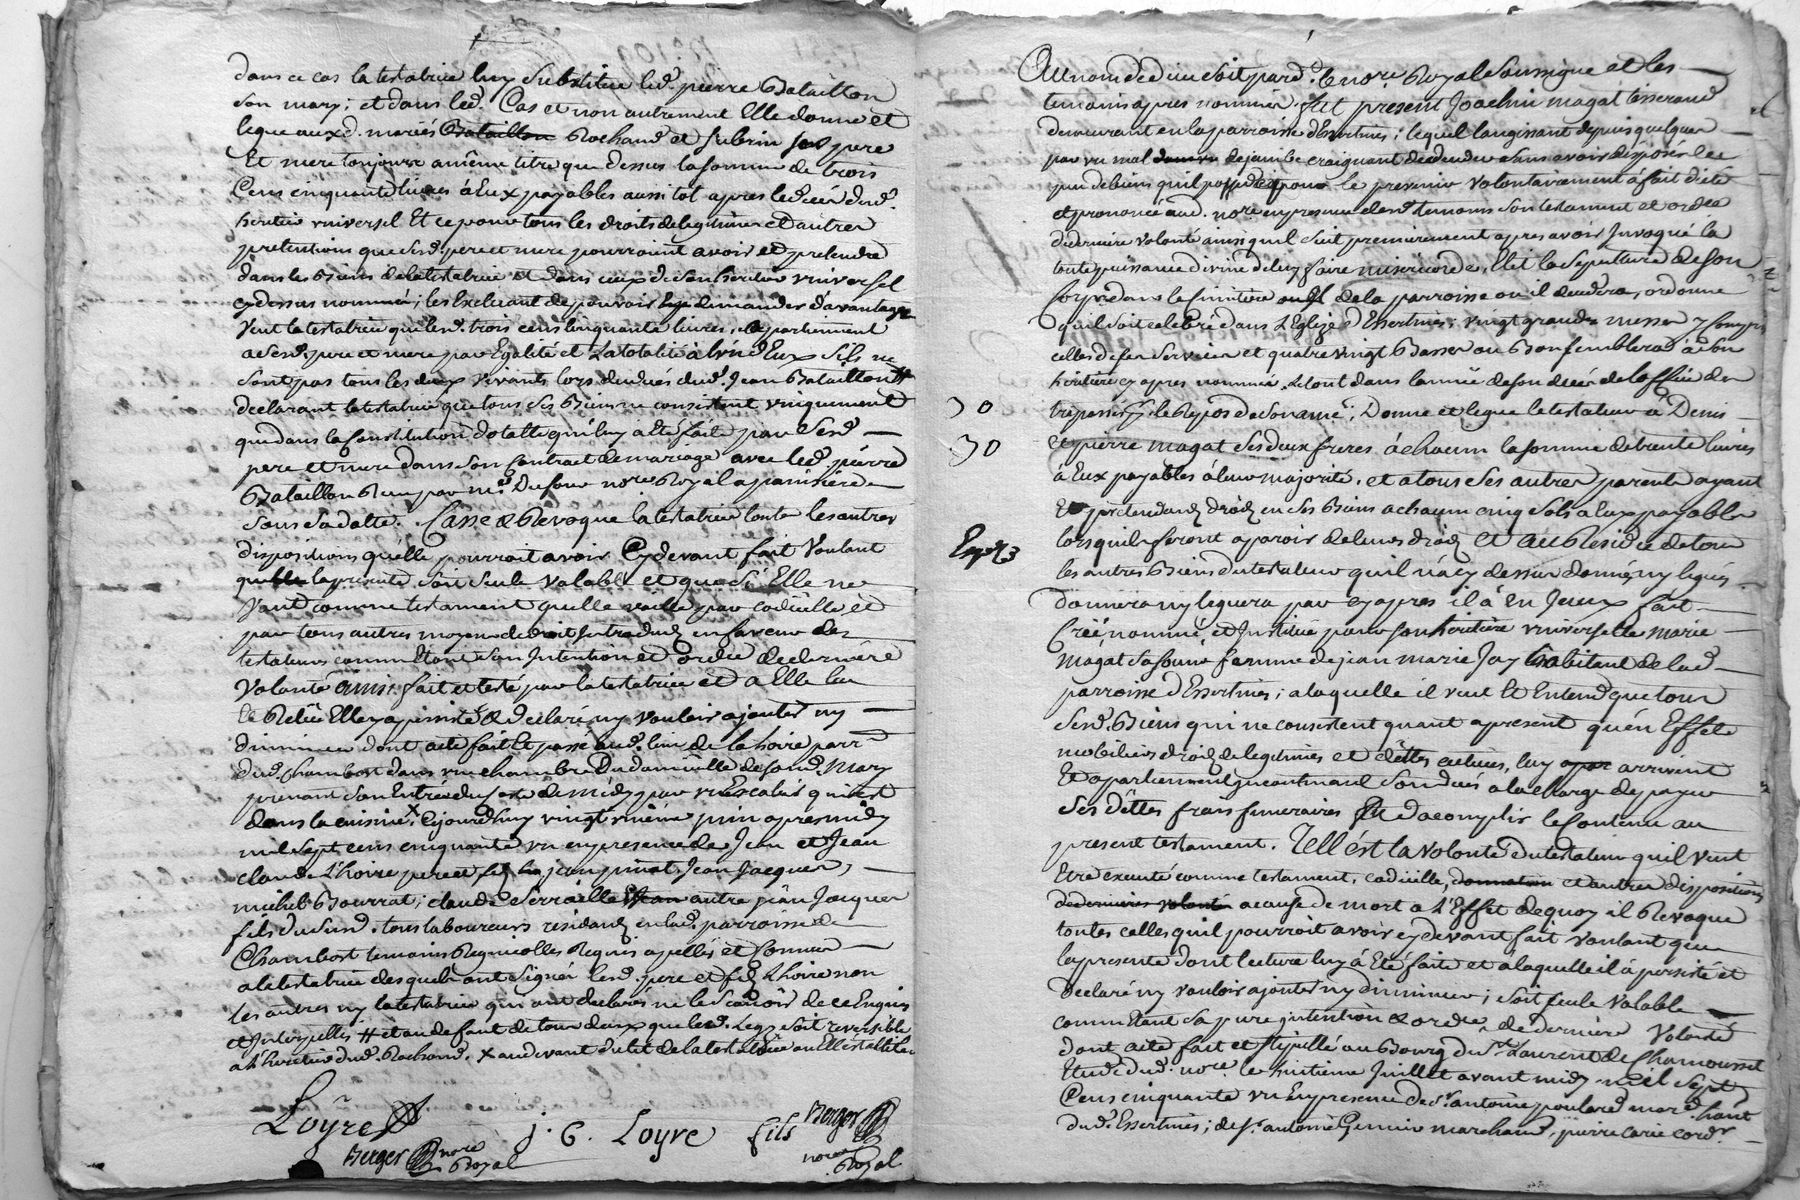 dans ce cas la testatrice luy substitue led. pierre Bataillon
son mary; et dans led. Cas et non autrement Elle donne et
legue auxd. mariés Bataillon Rochand et suberin ses pere
Et mere toujours a même titre que dessus la somme de trois
Cens cinquante livres à Eux payables aussi tot apres le deces dud.
heritier universel Et ce pour tous les droits de legitime et autres
pretentions que sesd. pere et mere pourraient avoir et pretendre
dans les Biens de la testatrice et dans ceux de son heritier universel
cy dessus nommé; les Excluant de pouvoir demander davantage
Veut la testatrice que lesd. trois cens cinquante livres, apartiennent
a sesd. pere et mere par Egalité et La totalité à l'un d'Eux s'ils ne
sont pas tous les deux vivants lors du deces dud. Jean Bataillon #
declarant la testatrice que tous ses Biens ne consistent uniquement
que dans la Constitution dotalle qui luy a eté faite par sesd.
pere et mere dans son Contract de mariage avec led. pierre
Bataillon Reçu par me. Dufour nore. Royal a panissiere
sous sa datte. Casse & Revoque la testatrice toutes les autres
dispositions qu'elle pourroit avoir Cy devant fait Voulant
que la presente soit seule valable et que si Elle ne
Vaut comme testament quelle vaille par codicille et
par tous autres moyens de droit introduits en faveur des
testateurs comme Etant son Intention et ordre de derniere
Volonté ainsi fait et testé par la testatrice et a Elle lu
Et Relu Elle y a persisté & declaré ny vouloir ajouter ny
diminuer dont acte fait et passé aud. lieu de la hoire parr.
dud. Chambost dans une chambre Du domicille de sond. Mary
prenant son Entrée du coté de midy par un Escalier qui est
dans la cuisine x Cejourd'huy vingt unième juin apres midy
mil sept cens cinquante un en presence de Jean et Jean
claude L'hoire pere et fils jean pinat, Jean Jacquer,
michel Bourrat; claude Serraille autre jean Jacquer
fils du susd. tous laboureurs residants en lad. parroisse de
Chambost temoins Regnicolles Requis apellés et Connus
a la testatrice desquels ont signés lesd. pere et fils L'hoire non
les autres ny la testatrice qui ont declarés ne le sçavoir de ce Enquis
et Interpellés # et au defaut de tous deux que led. Legs soit reversible
a l'heritier dud. Rochand. x au devant du lit de la testatrice ou Elle est allitée
Loyre
J. C. Loyre fils
Berger nore Royal
Berger nore Royal
Au nom de dieu soit pard. le nore. Royal Soussigne et les
temoins apres nommés fut present Joachin magat tisserand
demeurant en la parroisse d'Essertines; lequel languissant depuis quelques
par un mal de jambe craignant de deceder sans avoir disposé de ce
peu de biens qu'il possede pour le prevenir volontairement a fait dicté
et prononcé aud. nore. en presence desd. temoins son testament et ordre
de derniere volonté ainsi quil suit premierement apres avoir Invoqué la
toute puissance divine de luy faire misericorde, Elit la sepulture de son
Corps dans le cimitiere de la parroisse ou il decedera, ordonne
qu'il soit celebré dans L'Eglize d'Essertines; vingt grandes messes y Compris
celles de son Service et quatre vingt Basses ou Bon semblera à son
heritiere cy apres nommée. Le tout dans l'année de son decés de l'office des
trepassés p. le Repos de son ame; Donne et legue le testateur à Denis
30
Et pierre magat ses deux freres à chacun la somme de trente livres
30
à Eux payables à leur majorité. et a tous ses autres parents ayant
Et pretendants droits en ses Biens a chacun cinq sols a Eux payables
lorsquils feront aparoir de leurs droits Et au Residu de tous
les autres Biens du testateur quil n'a cy dessus donnés ny legués
donnera ny leguera par cy apres il à Eu Iceux fait
Créé, nommé, et Institué pour son heritiere universelle marie
Magat sa soeur femme de jean marie Jay habitant de lad.
parroisse d'Essertines; a laquelle il veut Et Entend que tous
sesd. Biens qui ne consistent quant a present qu'en Effets
mobiliers droits de legitimes et dettes actives, luy arrivent
Et apartiennent incontinent son deces a la charge de payer
ses dêttes frais funeraires Et d'acomplir le Contenu au
present testament. Tell'ést la volonté du testateur quil veut
Etre executé comme testament, codicille, donnation et autres dispositions
de dernieres volonté a cause de mort a L'Effet de quoy il Revoque
toutes celles quil pourroit avoir cy devant fait Voulant que
la presente dont lecture luy à Eté faite et a laquelle il à persisté et
declaré ny vouloir ajouter ny diminuer; soit seule valable
comme Etant sa pure intention & ordre, de derniere Volonté
dont acte fait et stipullé au Bourg du St. Laurent de Chamousset
Etude dud. nore. le huitieme Juillet avant midy mil sept
Cens cinquante un En presence de sr. antoine poulard mard.
dud. Essertines; de sr. antoine Grimier marchand, pierre Carie cordr.